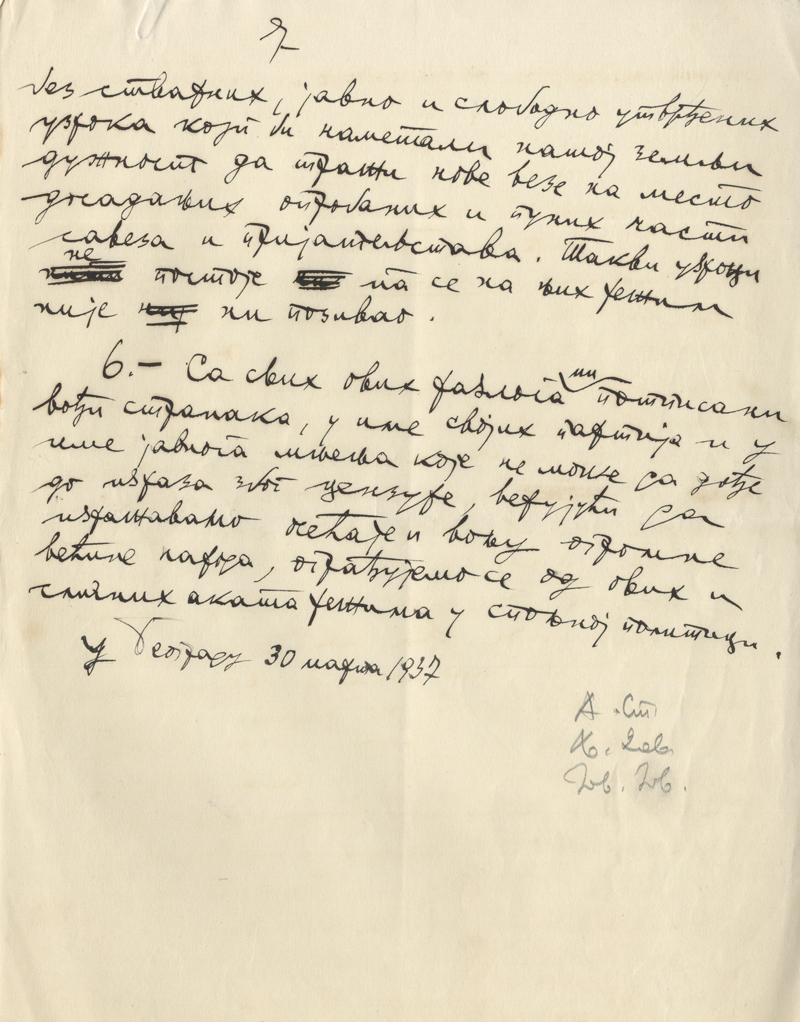 7
без стварних, јавно и слободно утврђених
узрока који би наметали нашој земљи
дужност да тражи нове везе на место
досадањих опробаних и пуних части
савеза и пријатељстава. Такви узроци
не постоје па се на њих режим
није ни позивао.
6.– Са свих ових разлога ми потписани
вођи странака, у име својих партија и у
име јавнога мњења које не може да дође
до израза због цензуре, верујући да
изражавамо осећаје и вољу огромне
већине народа, ограђујемо се од ових и
сличних аката режима у спољној политици.
У Београду 30 марта 1937
А. Ст
Љ. Дав
Јов. Јов.